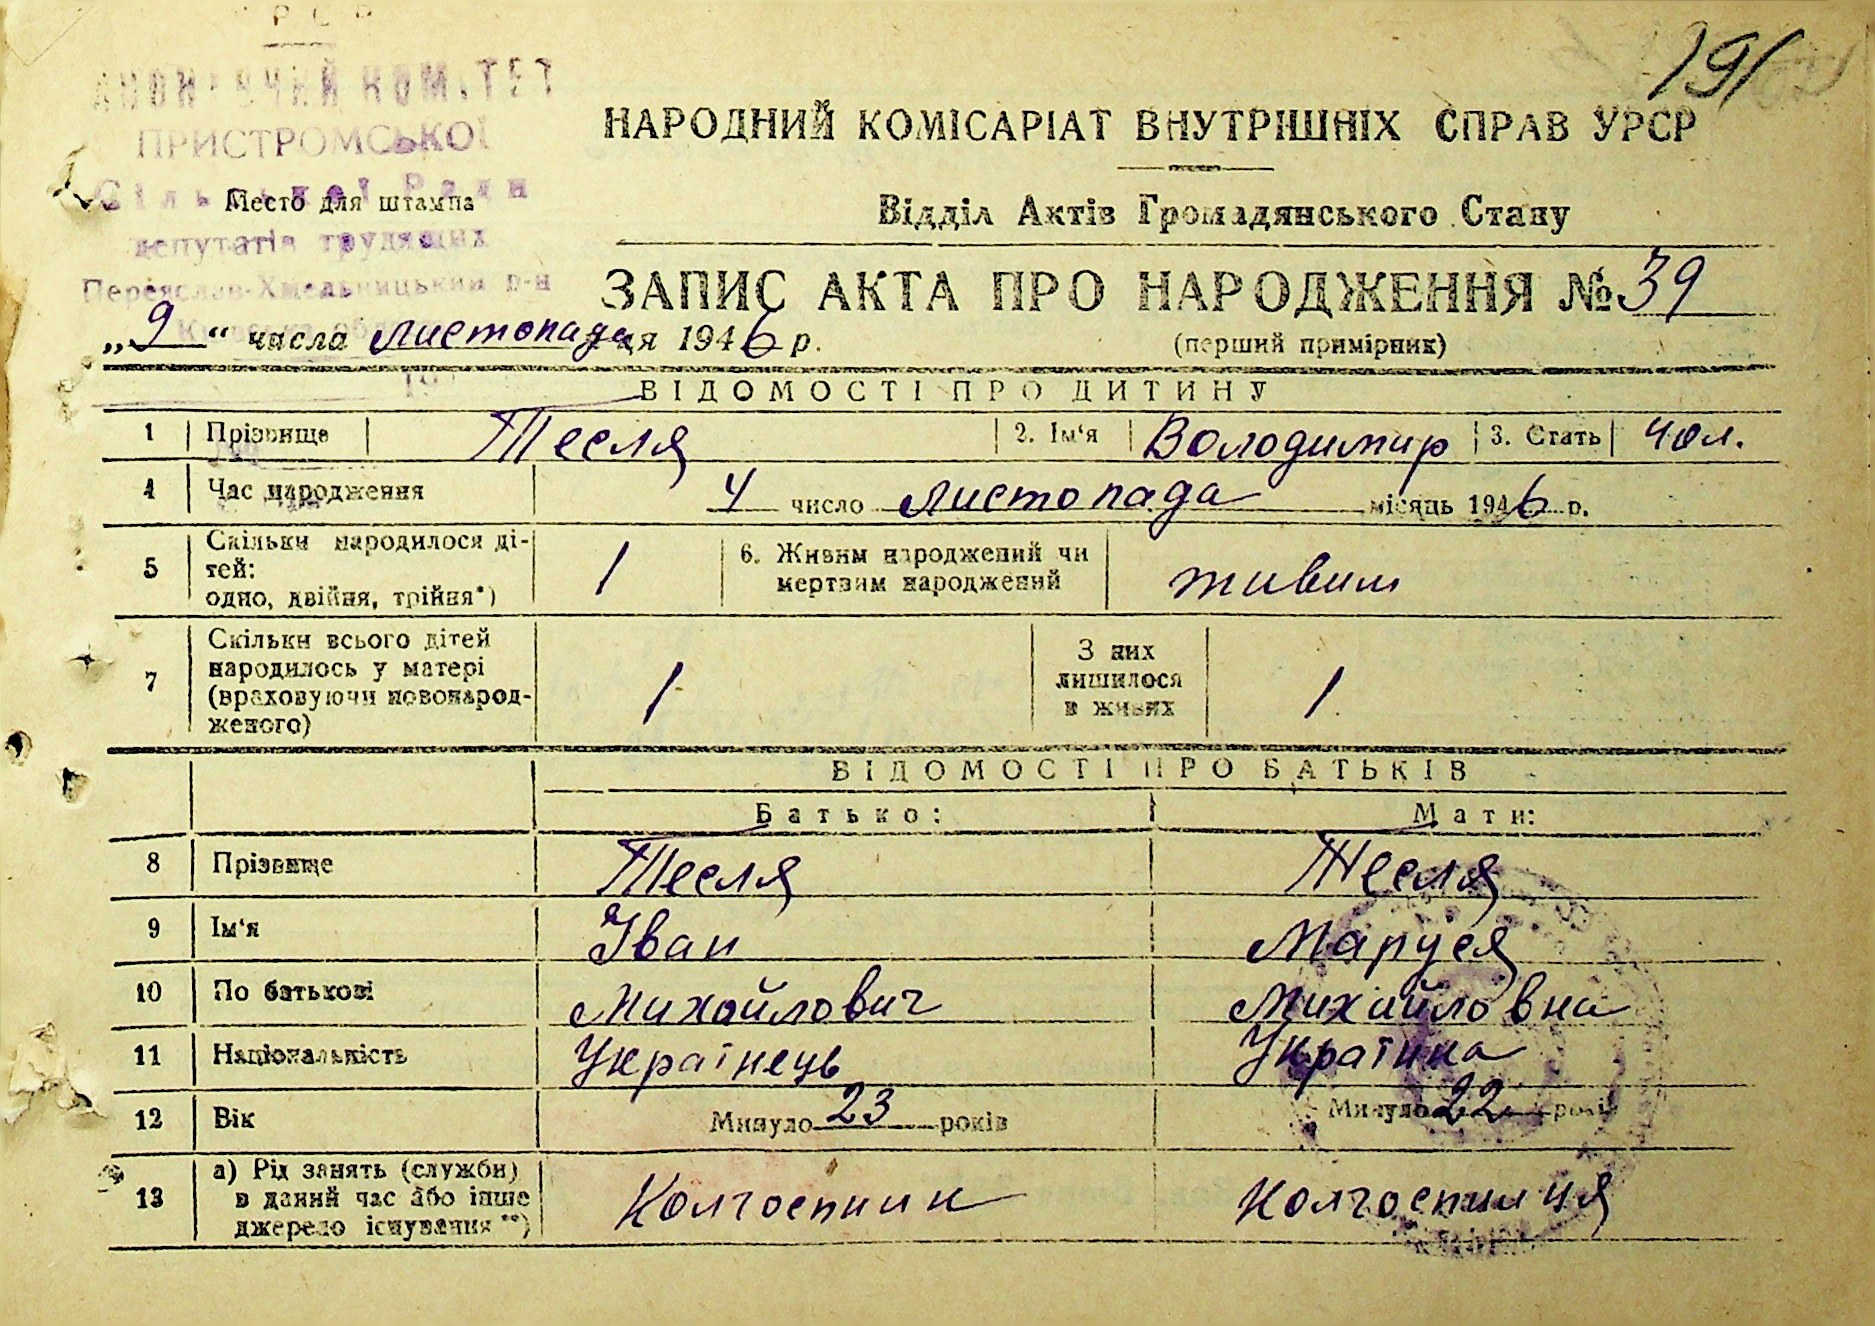 РСР
ВИКОНАВЧИЙ КОМІТЕТ
ПРИСТРОМСЬКОЇ
Сільської Ради
депутатів трудящих
Переяслав-Хмельницький р-н
Место для штампа
191
НАРОДНИЙ КОМІСАРІАТ ВНУТРІШНІХ СПРАВ УРСР
Відділ Актів Громадянського Стану
ЗАПИС АКТА ПРО НАРОДЖЕННЯ № 39
„9“ числа листопада ця 1946 р.
(перший примірник)
ВІДОМОСТІ ПРО ДИТИНУ
1 Прізвище Тесля 2. Ім‘я Володимир 3. Стать чол.
4 Час народження 4 число листопада місяць 1946 р.
5 Скільки народилося ді-
тей:
одно, двійня, трійня*)
1
6. Живим народжений чи
мертвим народжений
живим
7 Скільки всього дітей
народилось у матері
(враховуючи новонарод-
женого)
1
З них
лишилося
в живих
1
ВІДОМОСТІ ПРО БАТЬКІВ
Батько: Мати:
8 Прізвище Тесля Тесля
9 Ім‘я Іван Маруся
10 По батькові Михайлович Михайловна
11 Національність Українець Українка
12 Вік Минуло 23 років Минуло 22 років
13 а) Рід занять (служби)
в даний час або інше
джерело існування **)
Колгоспник Колгоспниця